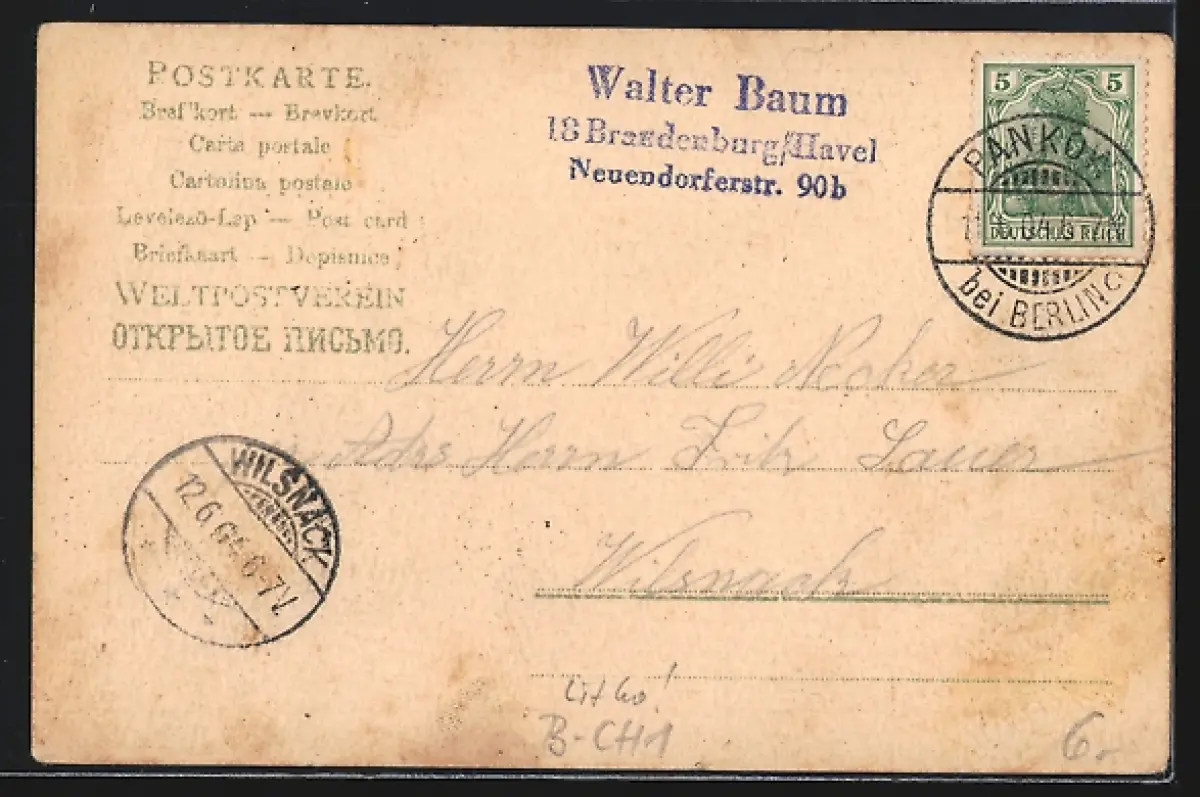 POSTKARTE.
Brefkort — Brevkort
Carte postale
Cartolina postale
Levelező-Lap — Post card
Briefkaart — Dopisnice
WELTPOSTVEREIN
ОТКРЫТОЕ ПИСЬМО.
Walter Baum
18 Brandenburg/Havel
Neuendorferstr. 90b
5 5
DEUTSCHES REICH
PANKOW
11.6.04.6-7N
bei BERLIN
Herrn Willi
Adrs Herrn Fritz Sauer
Wilsnack
WILSNACK
12.6.04.6-7V.
Litho!
B-CH1
6.-